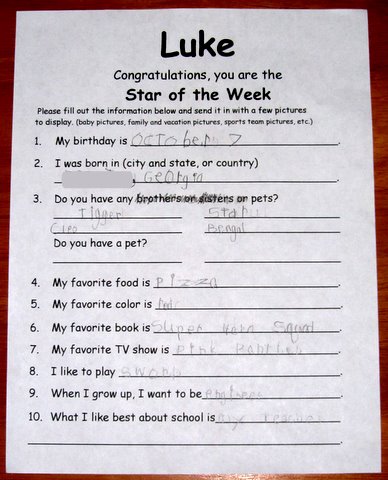 Luke
Congratulations, you are the
Star of the Week
Please fill out the information below and send it in with a few pictures
to display. (baby pictures, family and vacation pictures, sports team pictures, etc.)
1. My birthday is October 7.
2. I was born in (city and state, or country)
Georgia
3. Do you have any brothers or sisters or pets?
Tigger
Cleo Bengal
Do you have a pet?
4. My favorite food is Pizza.
5. My favorite color is
6. My favorite book is Super Hero Squad.
7. My favorite TV show is Pink
8. I like to play
9. When I grow up, I want to be
10. What I like best about school is